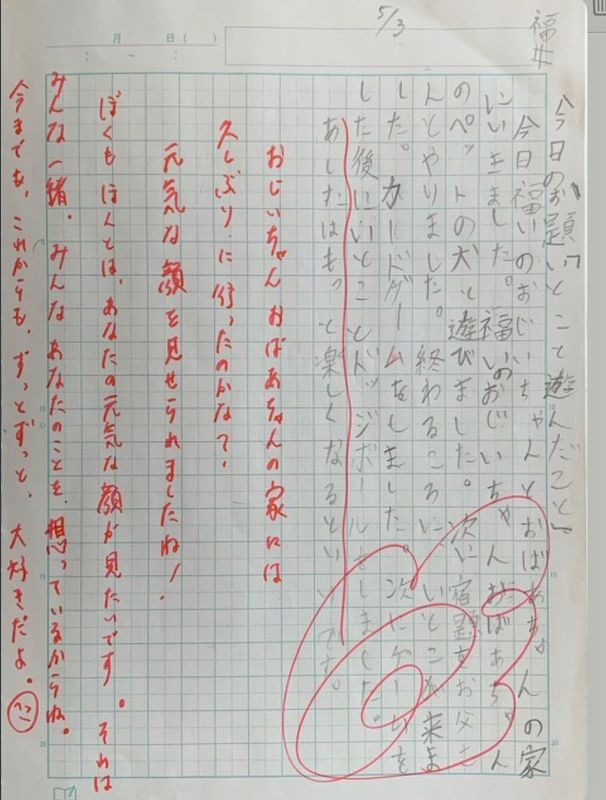 福井
5/3
月 日( )
: ~ :
「今日のお題いとこと遊んだこと」
今日福いのおじいちゃんとおばあちゃんの家
にいきました。福いのおじいちゃんおばあちゃん
のペットの犬と遊びました。次に宿題をお父さ
んとやりました。終わるころに、いとこが来ま
した。カードゲームをしました。次にゲームを
した後にいとことドッジボールをしました。
あしたはもっと楽しくなるといいです。
おじいちゃんおばあちゃんの家には
久しぶりに行ったのかな?
元気な顔を見せられましたね!
ぼくもほんとは、あなたの元気な顔が見たいです。それは
みんな一緒。みんなあなたのことを、想っているからね。
今までも、これからも、ずっとずっと、大好きだよ。